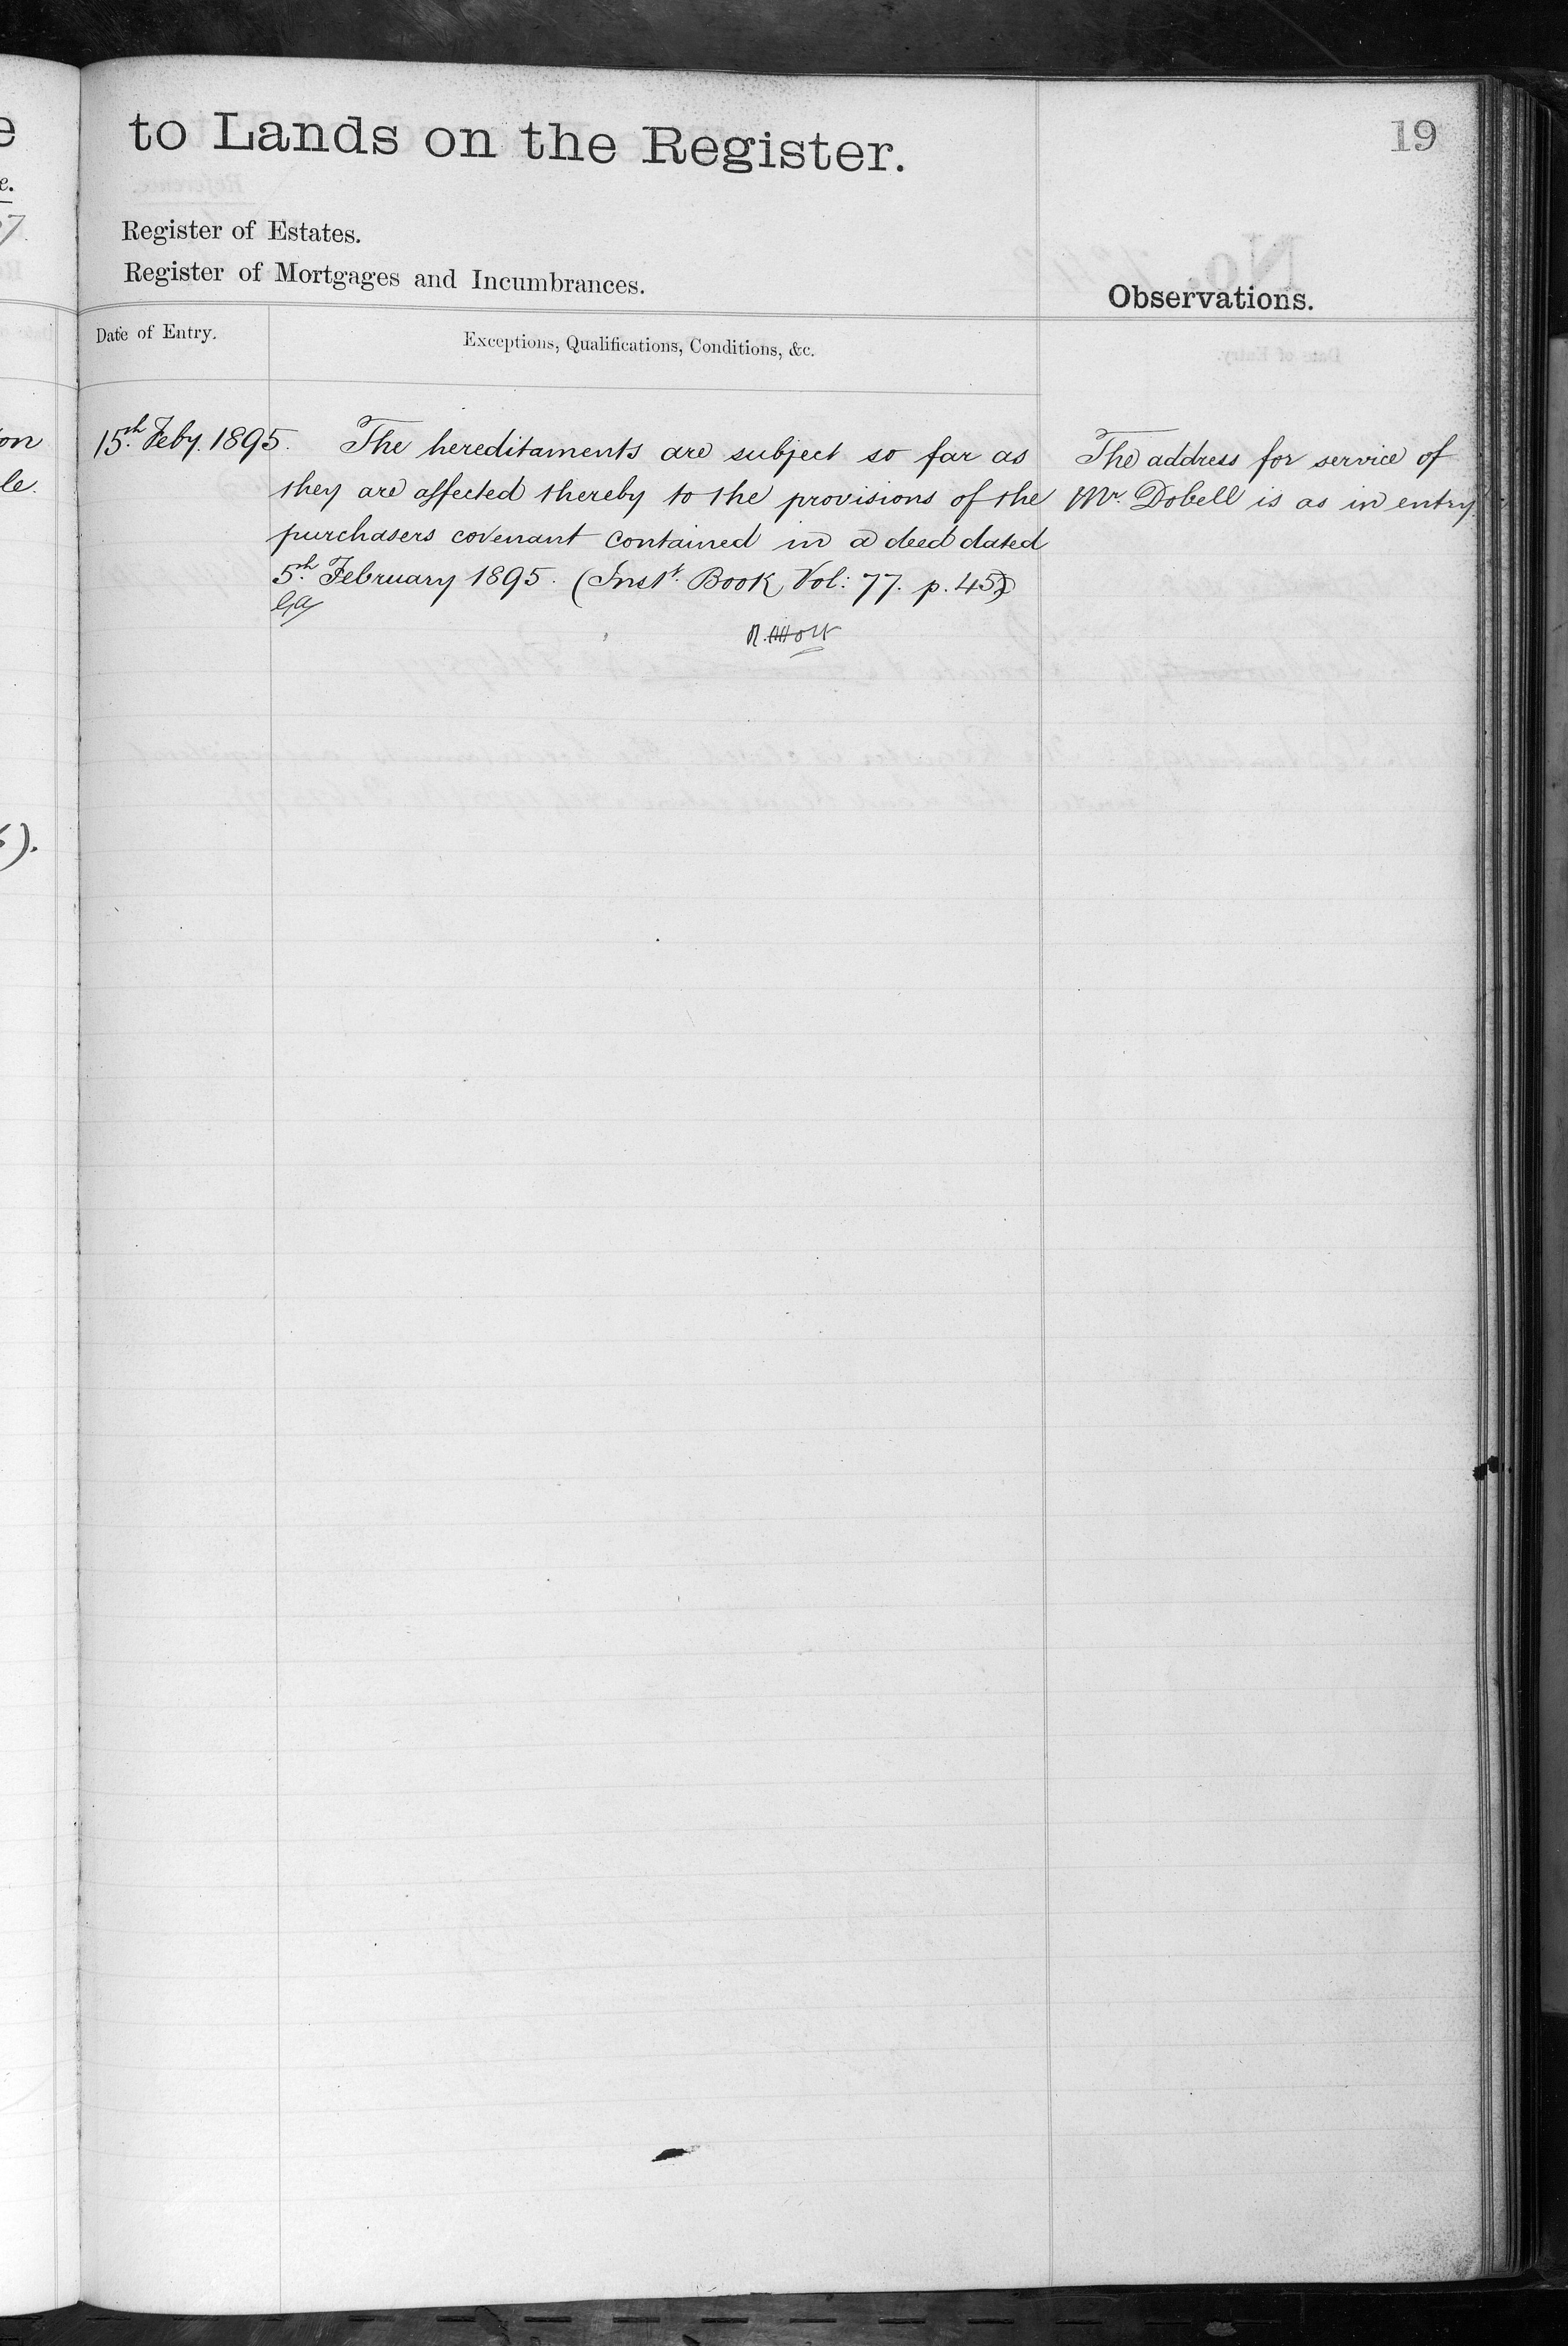 to Lands on the Register.
19
Register of Estates.
Register of Mortgages and Incumbrances.
Observations.
Date of Entry.
Exceptions, Qualifications, Conditions, &c.
15th Feby. 1895.
The hereditaments are subject so far as
they are affected thereby to the provisions of the
purchasers covenant contained in a deed dated
5th February 1895. (Inst. Book Vol: 77. p. 45)
The address for service of
Mr. Dobell is as in entry.